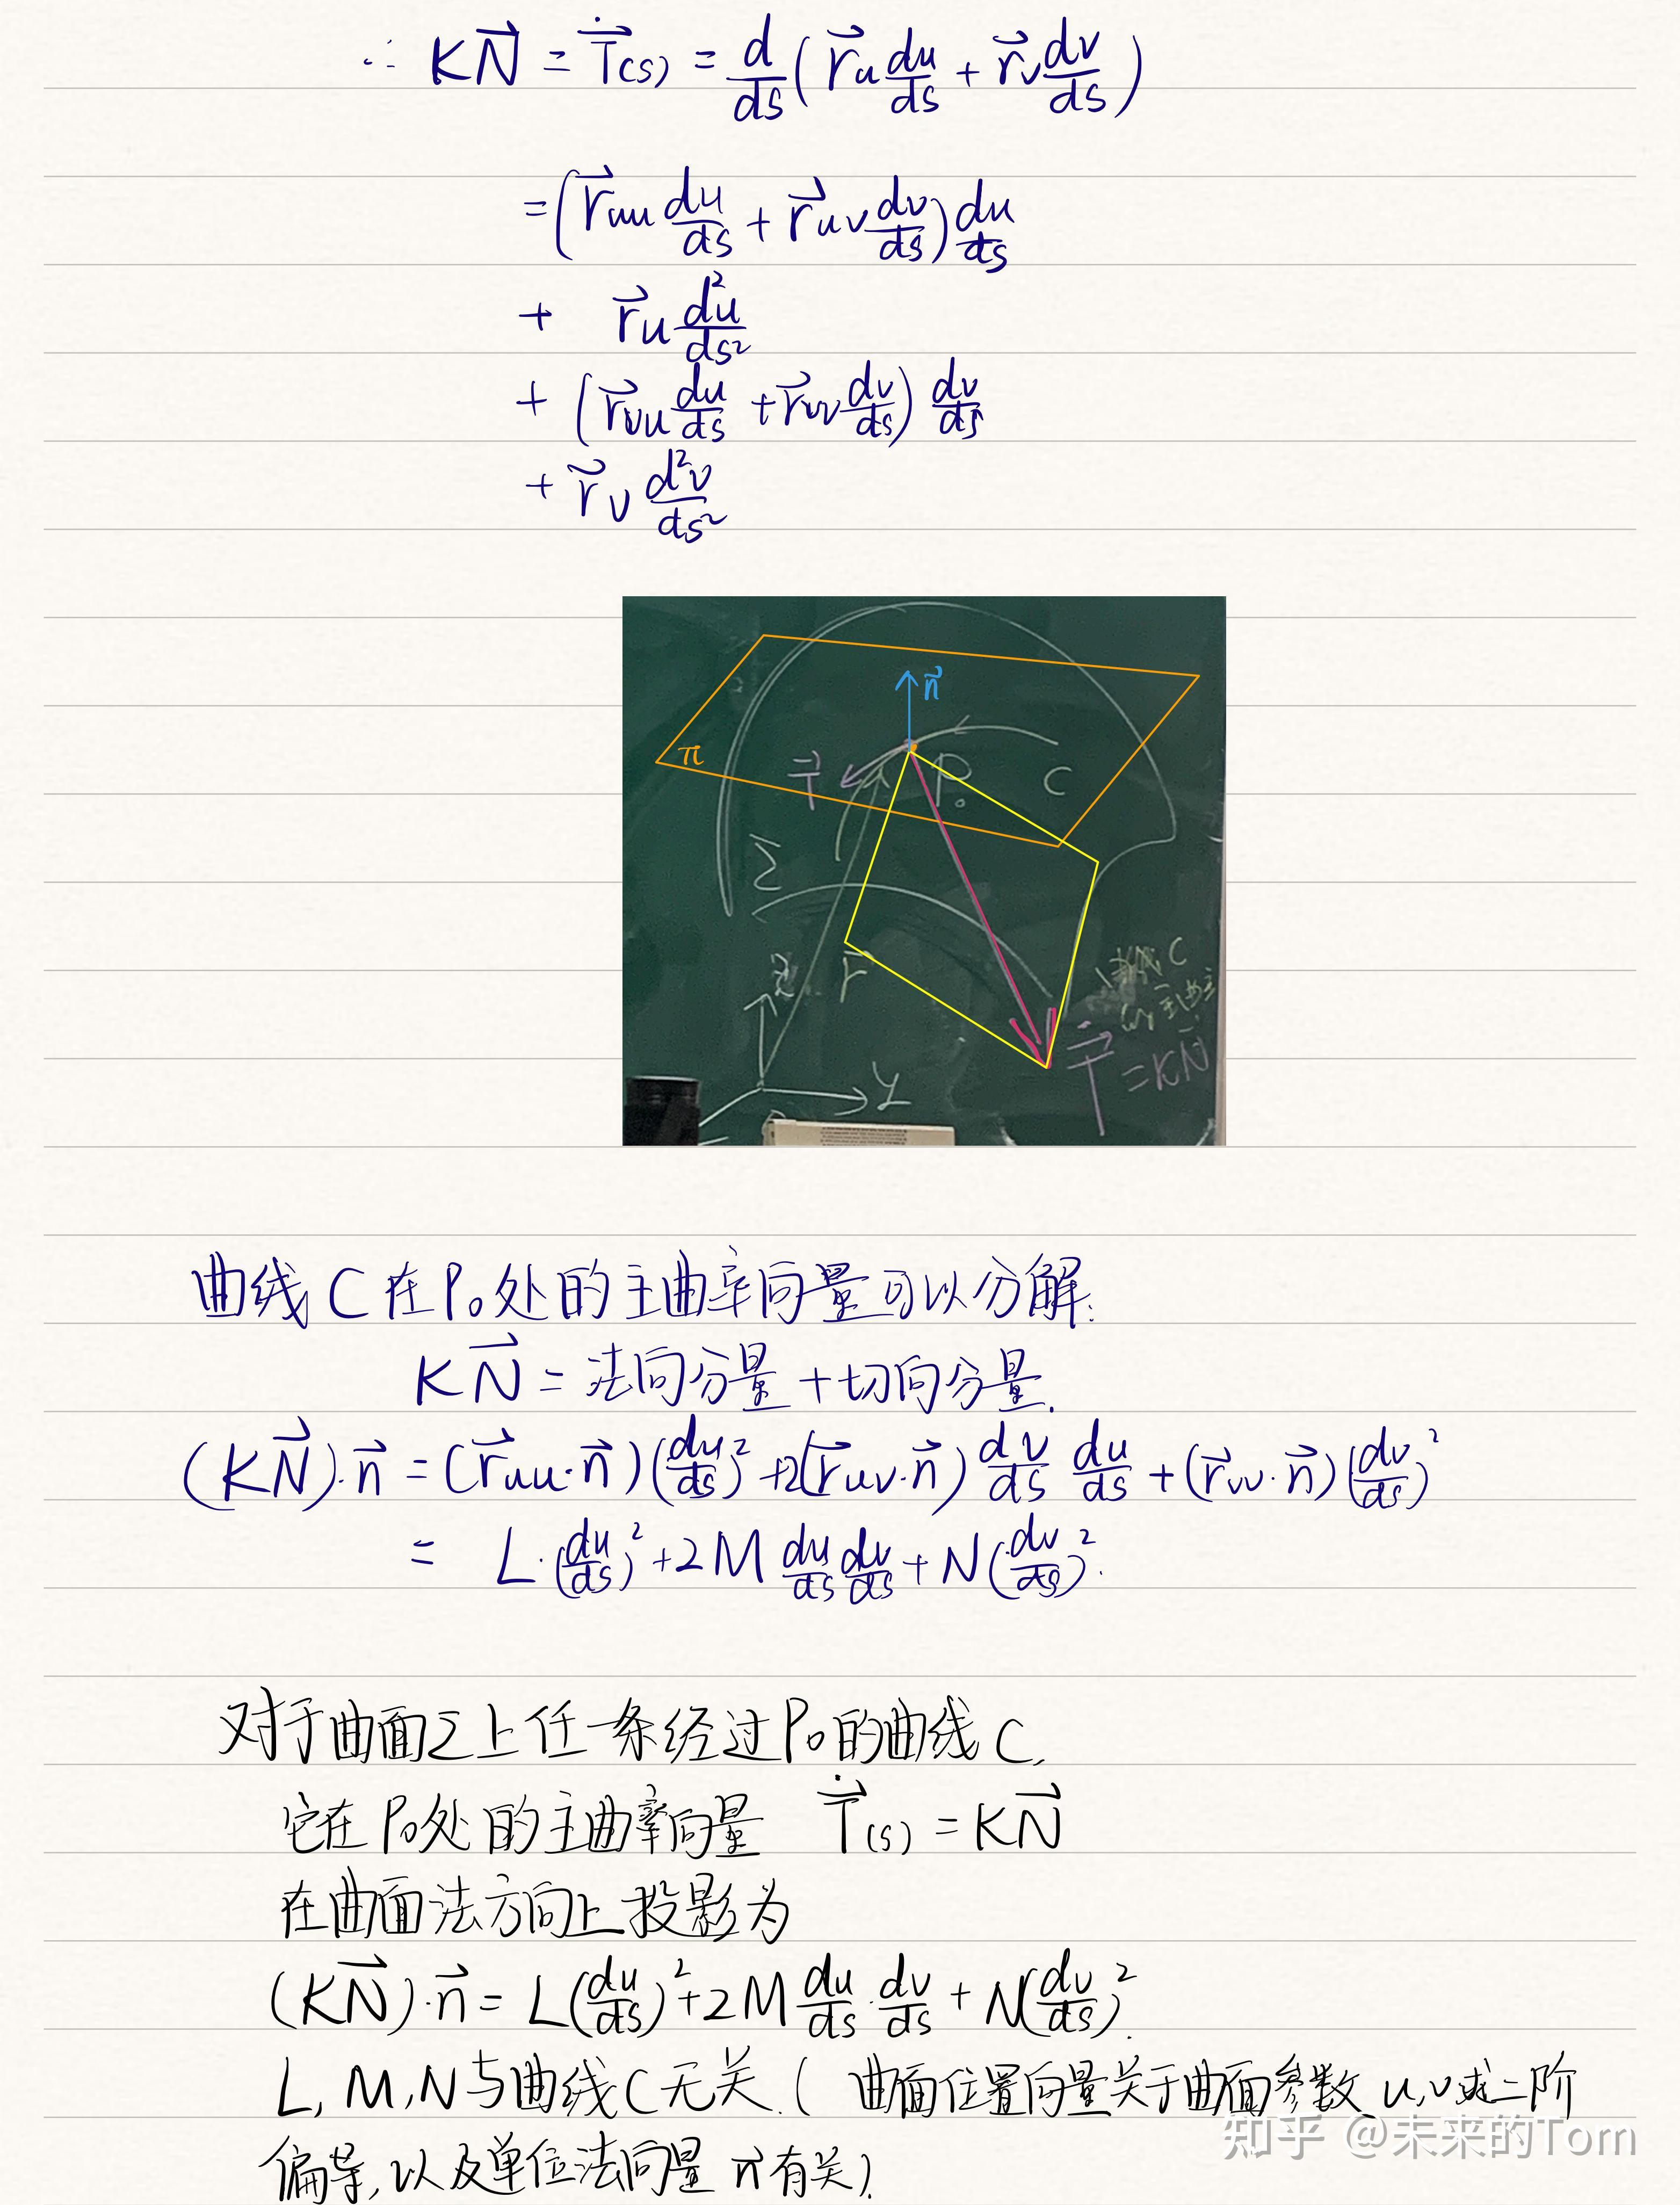 ∴ KN⃗ = T⃗̇(s) = d/ds ( r⃗u du/ds + r⃗v dv/ds )
= ( r⃗uu du/ds + r⃗uv dv/ds ) du/ds
+ r⃗u d²u/ds²
+ ( r⃗vu du/ds + r⃗vv dv/ds ) dv/ds
+ r⃗v d²v/ds²
n⃗
π
T⃗
P₀
C
Σ
r⃗
z
y
曲线C
T⃗̇
= KN⃗
曲线C在P₀处的主曲率向量可以分解:
KN⃗ = 法向分量 + 切向分量.
(KN⃗)·n⃗ = (r⃗uu·n⃗)(du/ds)² + 2(r⃗uv·n⃗) dv/ds du/ds + (r⃗vv·n⃗)(dv/ds)²
= L·(du/ds)² + 2M du/ds dv/ds + N(dv/ds)².
对于曲面Σ上任一条经过P₀的曲线C,
它在P₀处的主曲率向量 T⃗̇(s) = KN⃗
在曲面法方向上投影为
(KN⃗)·n⃗ = L(du/ds)² + 2M du/ds · dv/ds + N(dv/ds)².
L, M, N与曲线C无关.( 曲面位置向量关于曲面参数 u,v求二阶
偏导,以及单位法向量 n⃗ 有关).
知乎 @未来的Tom